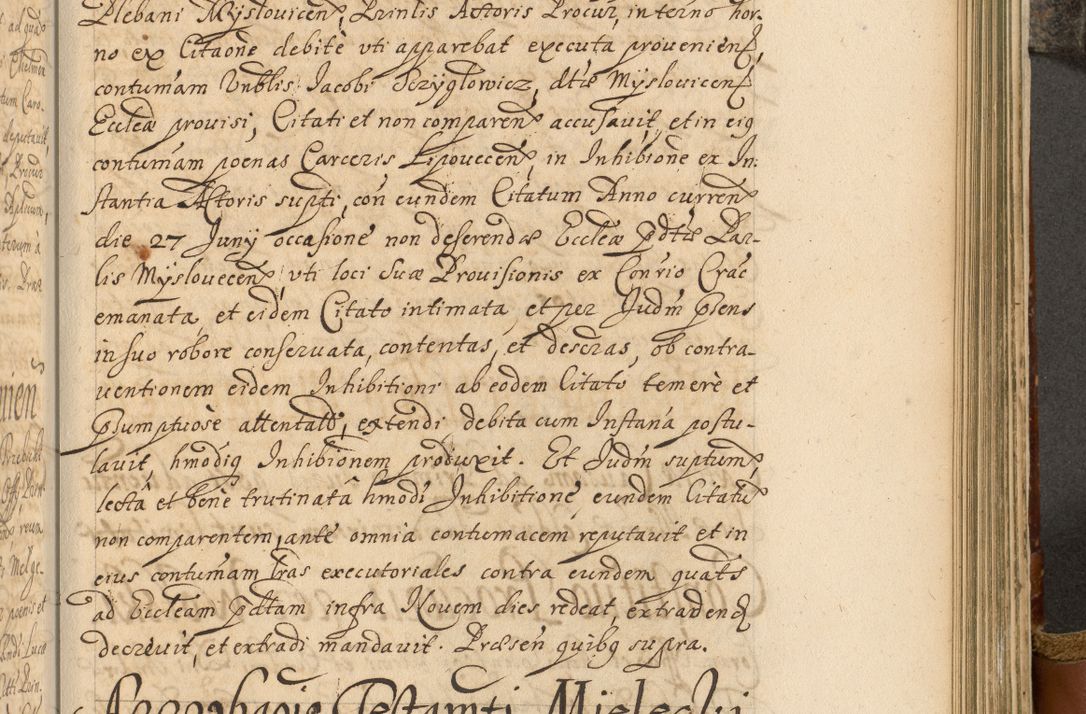 Plebani Mÿslovicen, Prinlis Actoris Procur, in terno hor-
no ex Citaoñe debitè vti apparebat executa provenien,
contumam Vnblis Jacobi Przÿgłowicz, dtæ Mÿslovicen
Eccleæ provisi, Citati et non comparen accusavit, et in eig
contumam poenas Carceris Lipovecen, in Inhibione ex In-
stantia Actoris supti, con eundem Citatum Anno curren
die 27 Junÿ occasione non deserendæ Eccleæ pdtæ Par-
lis Mÿslovecen, vti loci suæ Provisionis ex Conrio Crac
emanata, et eidem Citato intimata, et per Judm psens
in suo robore conservata, contentas, et descras, ob contra-
ventionem eidem Inhibitioni ab eodem Citato temerè et
psumptuosè attentatã, extendi debita cum Instana postu-
lavit, hmodig Inhibionem produxit. Et Judm suptum,
lectâ et bene trutinatâ hmodi Inhibitione, eundem Citatu
non comparentem, ante omnia contumacem reputavit et in
eius contumam lras executoriales contra eundem quats
ad Eccleam pdtam infra Novem dies redeat, extraden
decrevit, et extradi mandavit. Præsen quibg supra.
Approbatio Testamti Mielecki